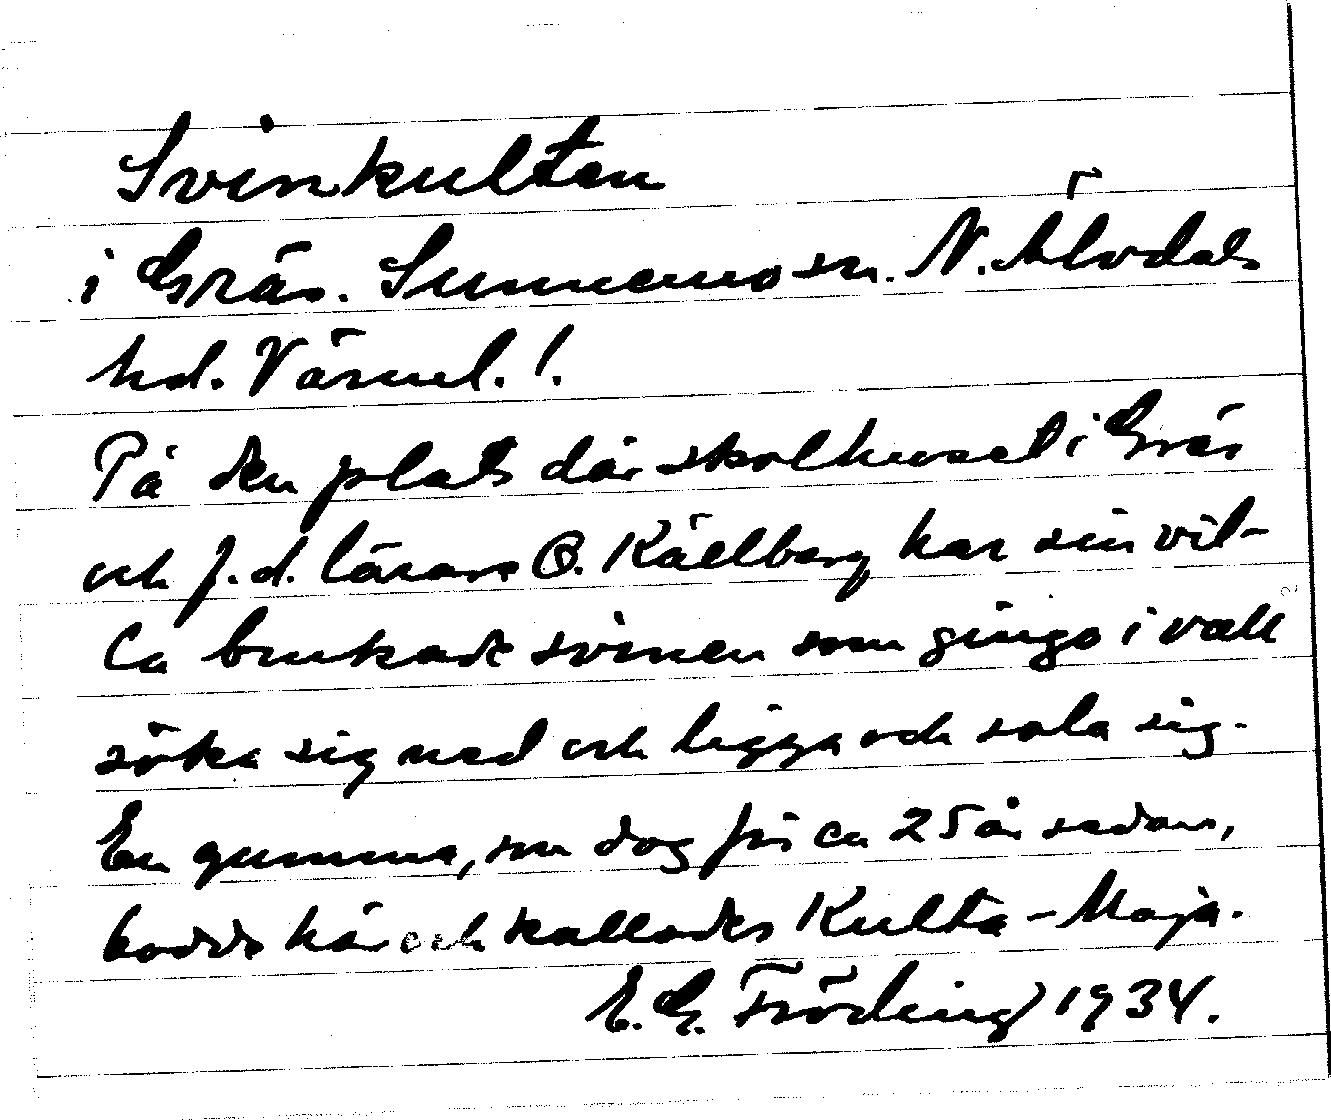 Svinkulten
i Gräs. Sunnemo sn. N. Älvdals
hd. Värml. !.
På den plats där skolhuset i Gräs
och f.d. lärare O. Källberg har sin vil-
la brukade svinen som gingo i vall
söka sig ned och ligga och sola sig.
En gumma, som dog för ca 25 år sedan,
bodde här och kallades Kulta-Maja.
E. G. Fröding 1934.